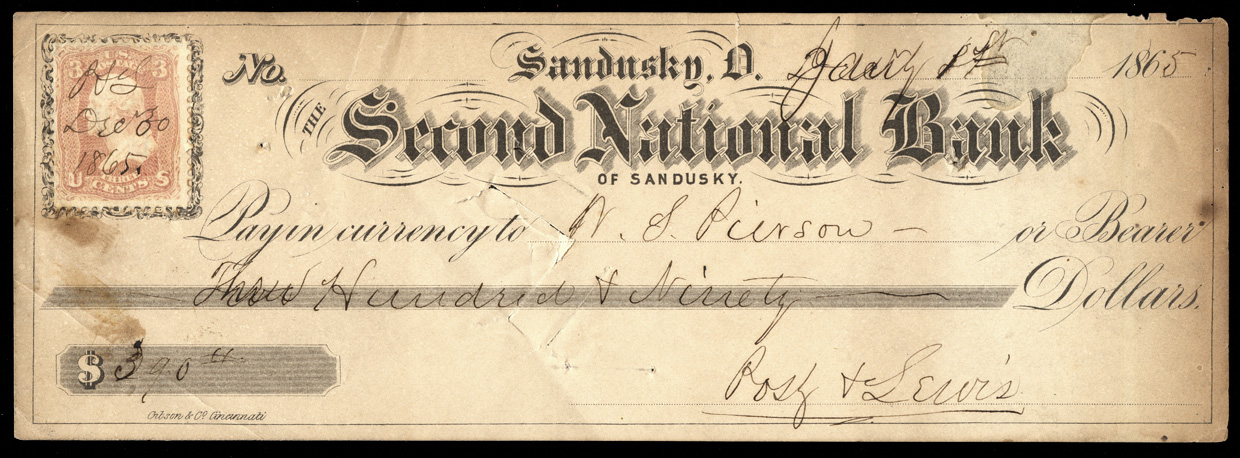 No. Sandusky, O. Jany 1st 1865
THE Second National Bank
OF SANDUSKY.
Pay in currency to W. S. Pierson — or Bearer
Three Hundred & Ninety — Dollars.
$ 390
Post & Lewis
Gibson & Co. Cincinnati
U.S.
3 3
Dec 30
1865.
U CENTS S